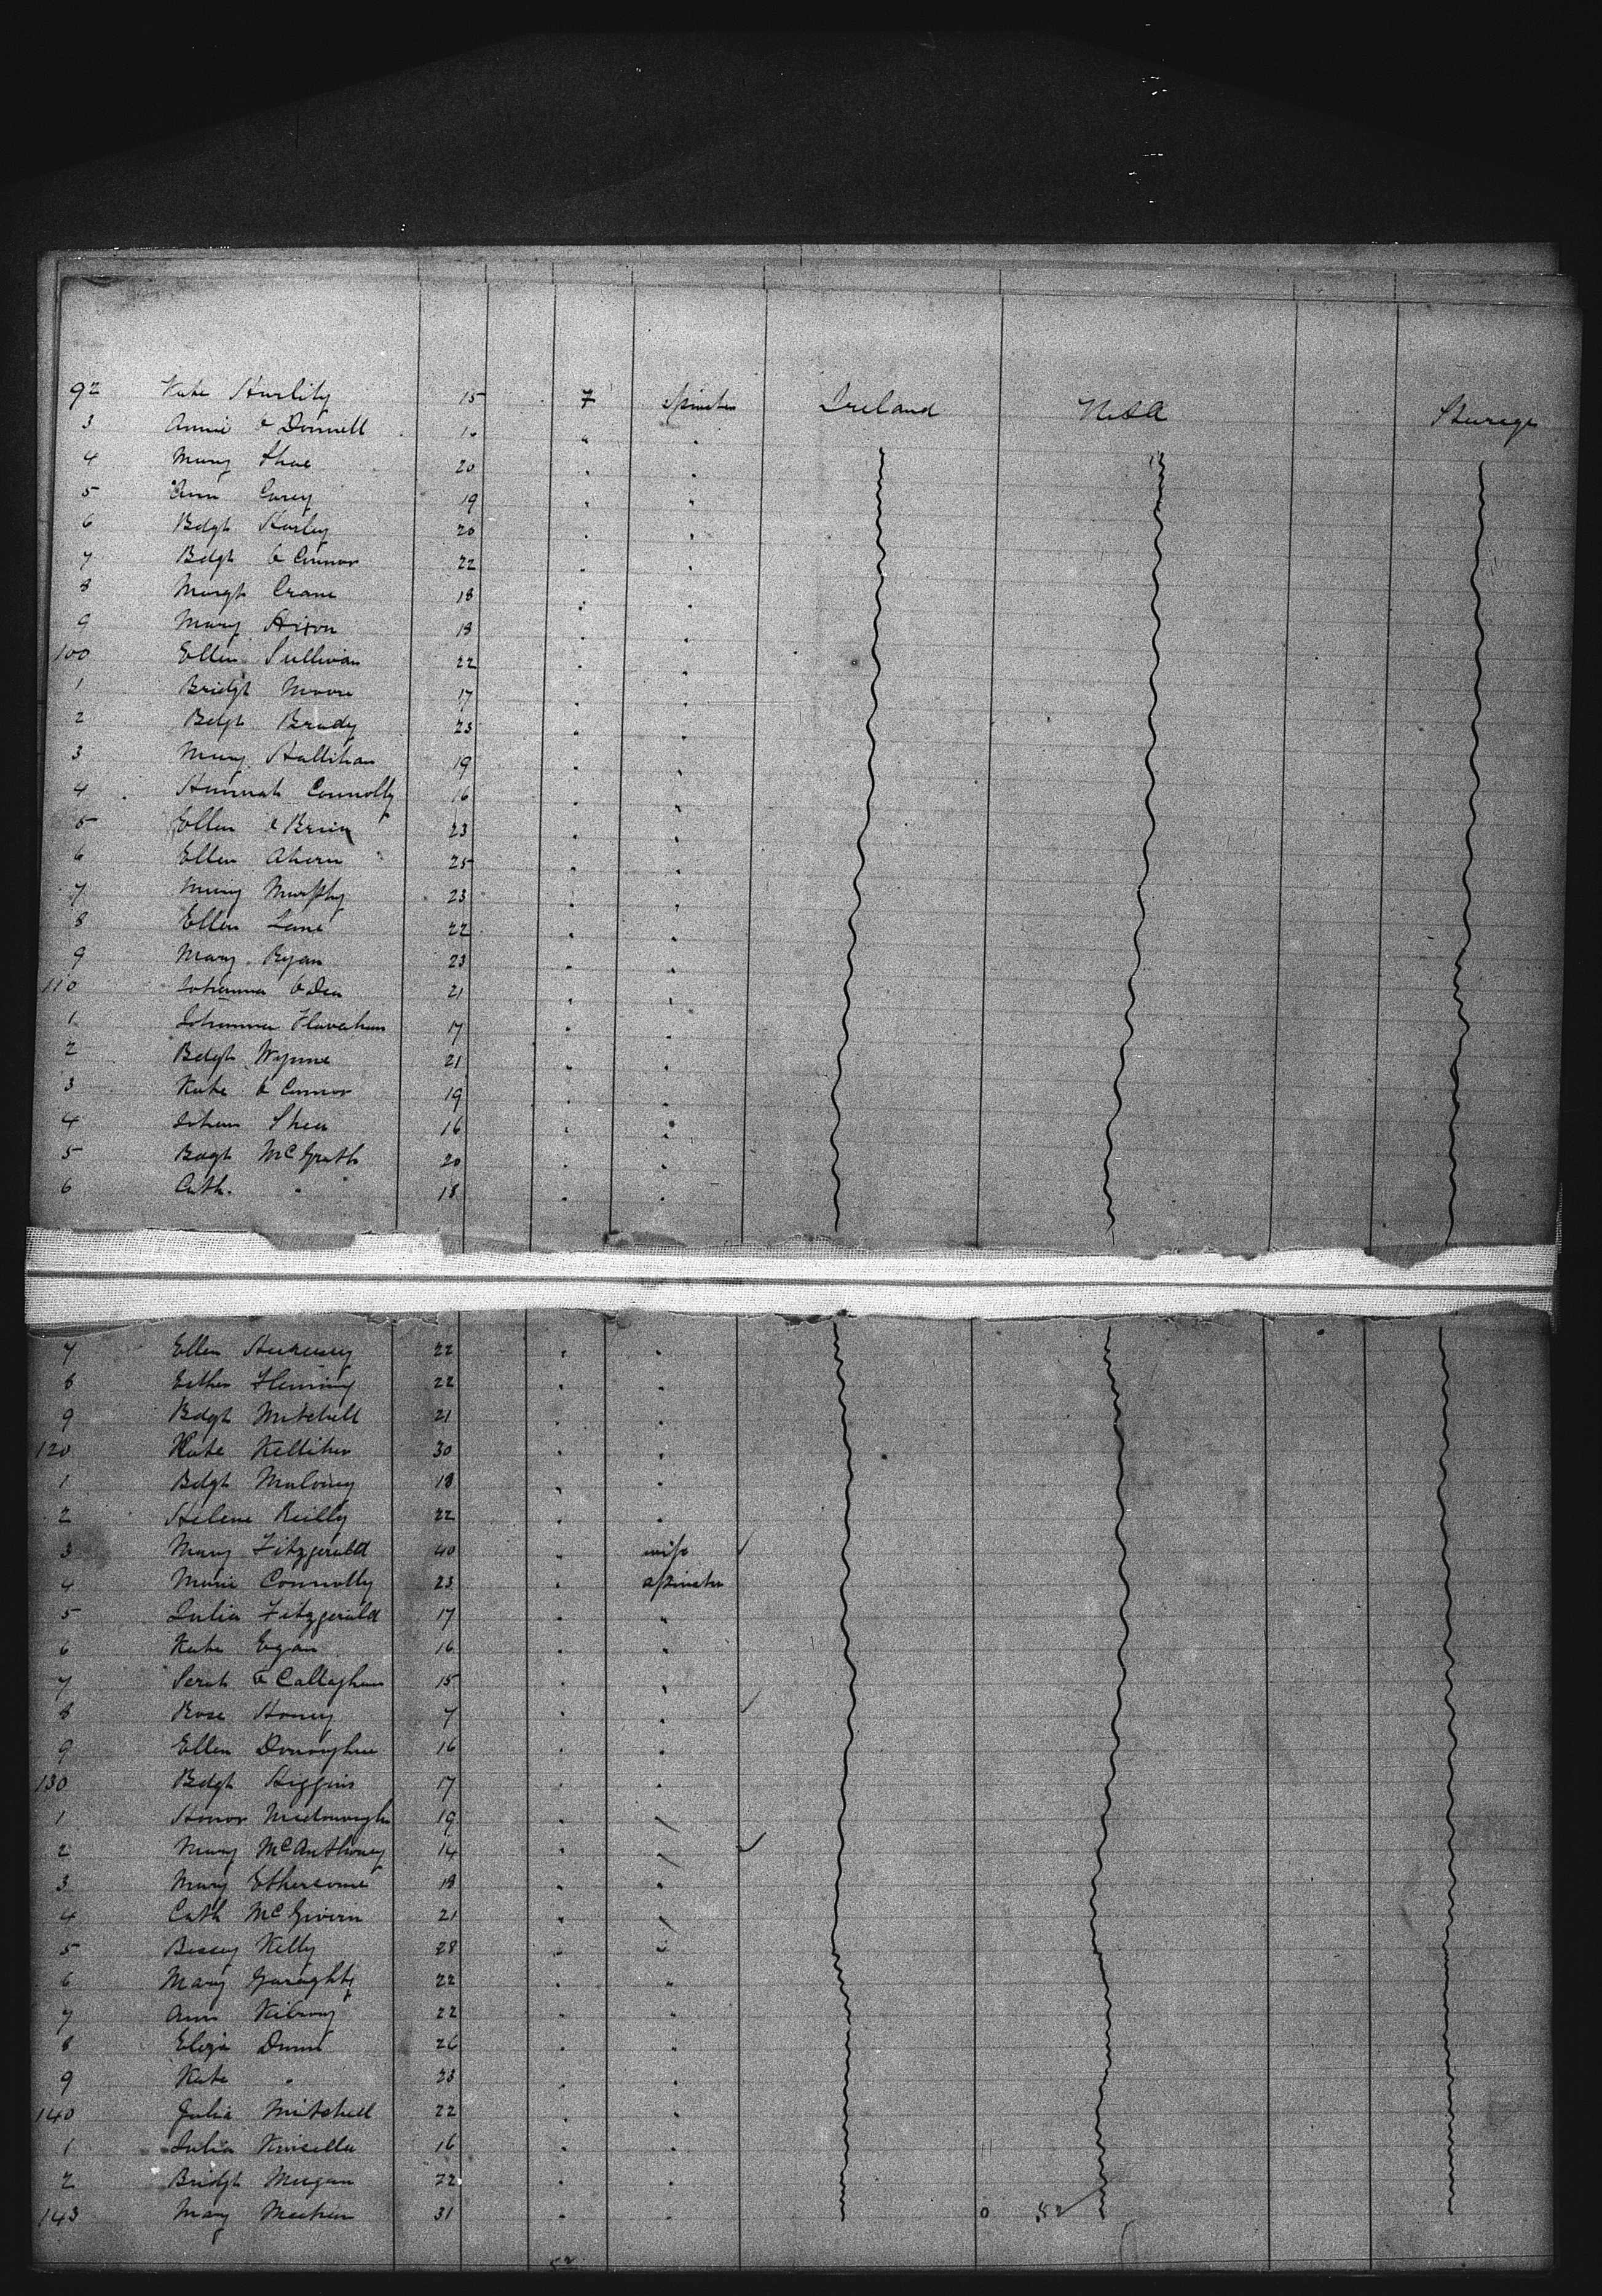 92 Kate Hurlity 15 7 Spinster Ireland USA Steerage
3 Annie O Donnell 16 " "
4 Mary Shae 20 " "
5 Ann Carey 19 " "
6 Bdgt Hurley 20 " "
7 Bdgt O Connor 22 " "
8 Margt Crane 18 " "
9 Mary Hixon 18 " "
100 Ellen Sullivan 22 " "
1 Bridgt Moore 17 " "
2 Bdgt Brady 23 " "
3 Mary Hallihan 19 " "
4 Hannah Connolly 16 " "
5 Ellen O Brien 23 " "
6 Ellen Ahern 25 " "
7 Mary Murphy 23 " "
8 Ellen Lane 22 " "
9 Mary Ryan 23 " "
110 Johanna O Dea 21 " "
1 Johanna Flavahan 17 " "
2 Bdgt Wynne 21 " "
3 Kate O Connor 19 " "
4 Johan Shea 16 " "
5 Bdgt McGrath 20 " "
6 Cath. " 18 " "
7 Ellen 22 " "
8 Esther Fleming 22 " "
9 Bdgt Mitchell 21 " "
120 Kate Kelliher 30 " "
1 Bdgt Maloney 18 " "
2 Helene Reilly 22 " "
3 Mary Fitzgerald 40 " wife
4 Marie Connolly 23 " spinster
5 Julia Fitzgerald 17 " "
6 Kate Egan 16 " "
7 Sarah O Callaghan 15 " "
8 Rose Honey 7 " "
9 Ellen Donoghue 16 " "
130 Bdgt Higgins 17 " "
1 Honor McDonough 19 "
2 Mary McAnthoney 14 "
3 Mary 18 " "
4 Cath McGivern 21 "
5 Bessey Kelly 28 " "
6 Mary Garaghty 22 " "
7 Ann Kilroy 22 " "
8 Eliza Dunne 26 " "
9 Kate " 23 " "
140 Julia Mitchell 22 " "
1 Julia Kinsella 16 " "
2 Bridgt Meegan 22 " "
143 Mary Meehan 31 " " 0 52
52